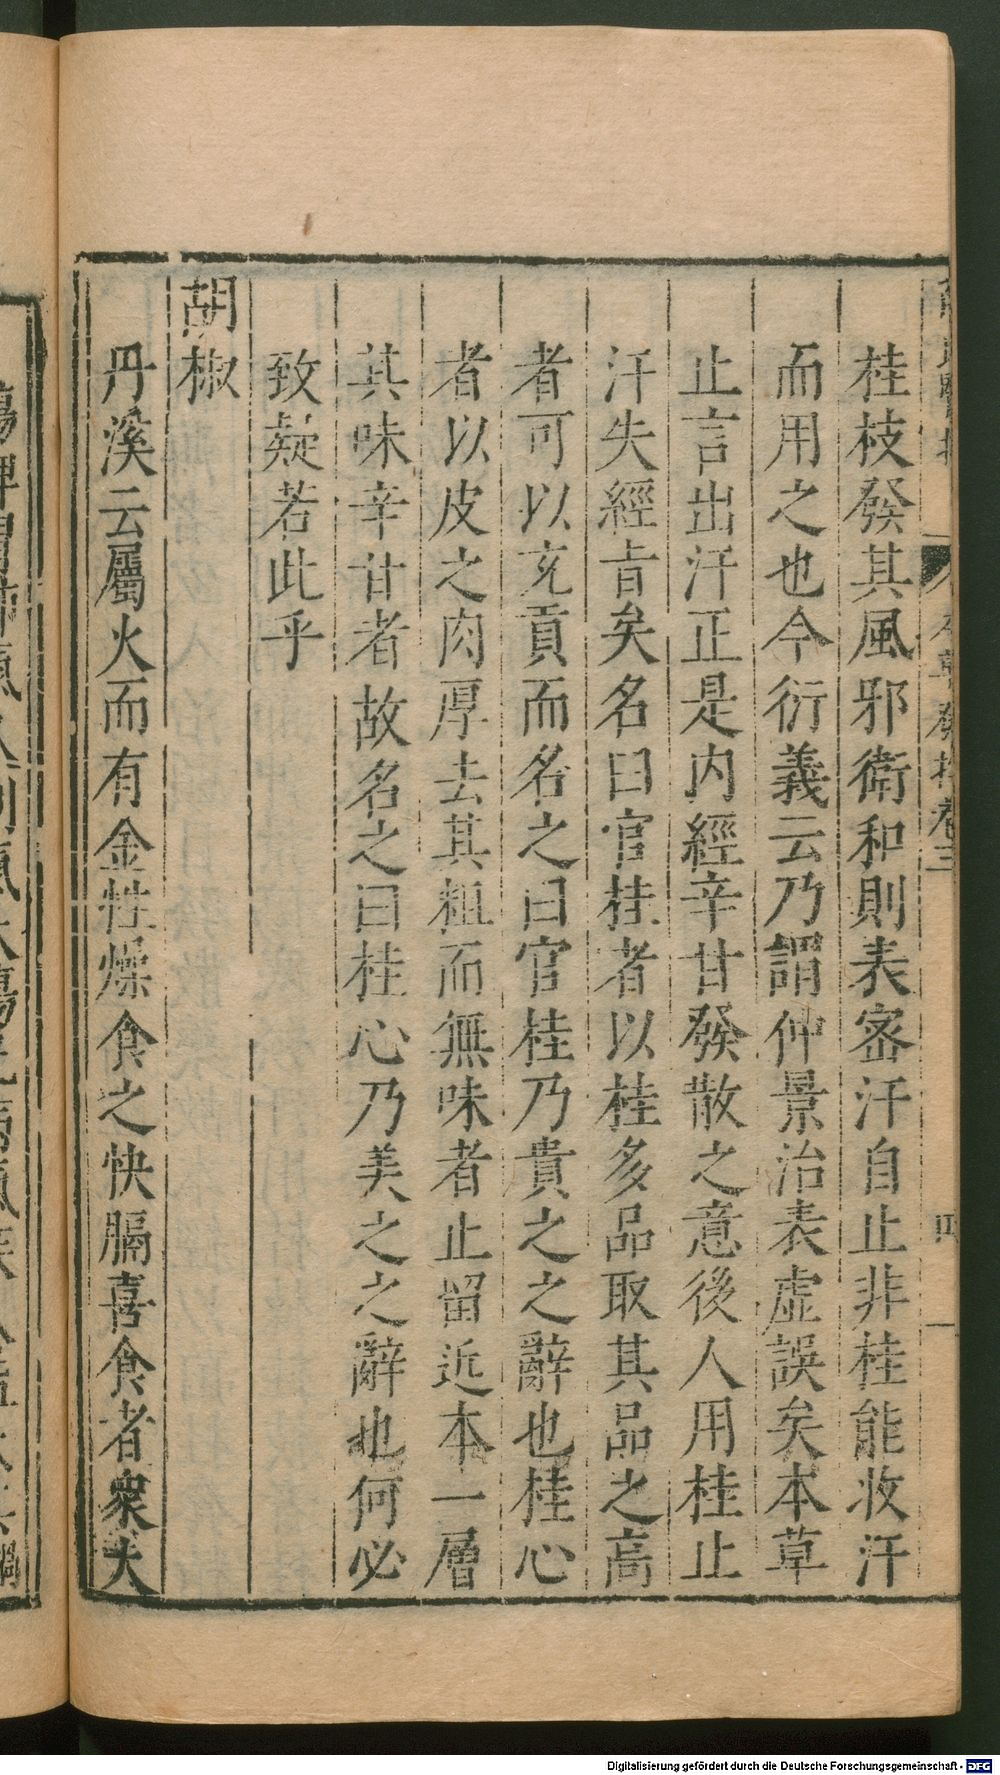 桂枝發其風邪衛和則表密汗自止非桂能收汗
而用之也今衍義云乃謂仲景治表虛誤矣本草
止言出汗正是内經辛甘發散之意後人用桂止
汗失經旨矣名曰官桂者以桂多品取其品之高
者可以充貢而名之曰官桂乃貴之之辭也桂心
者以皮之肉厚去其粗而無味者止留近本一層
其味辛甘者故名之曰桂心乃美之之辭也何必
致疑若此乎
胡椒
丹溪云屬火而有金性燥食之快膈喜食者衆大
Digitalisierung gefördert durch die Deutsche Forschungsgemeinschaft - DFG